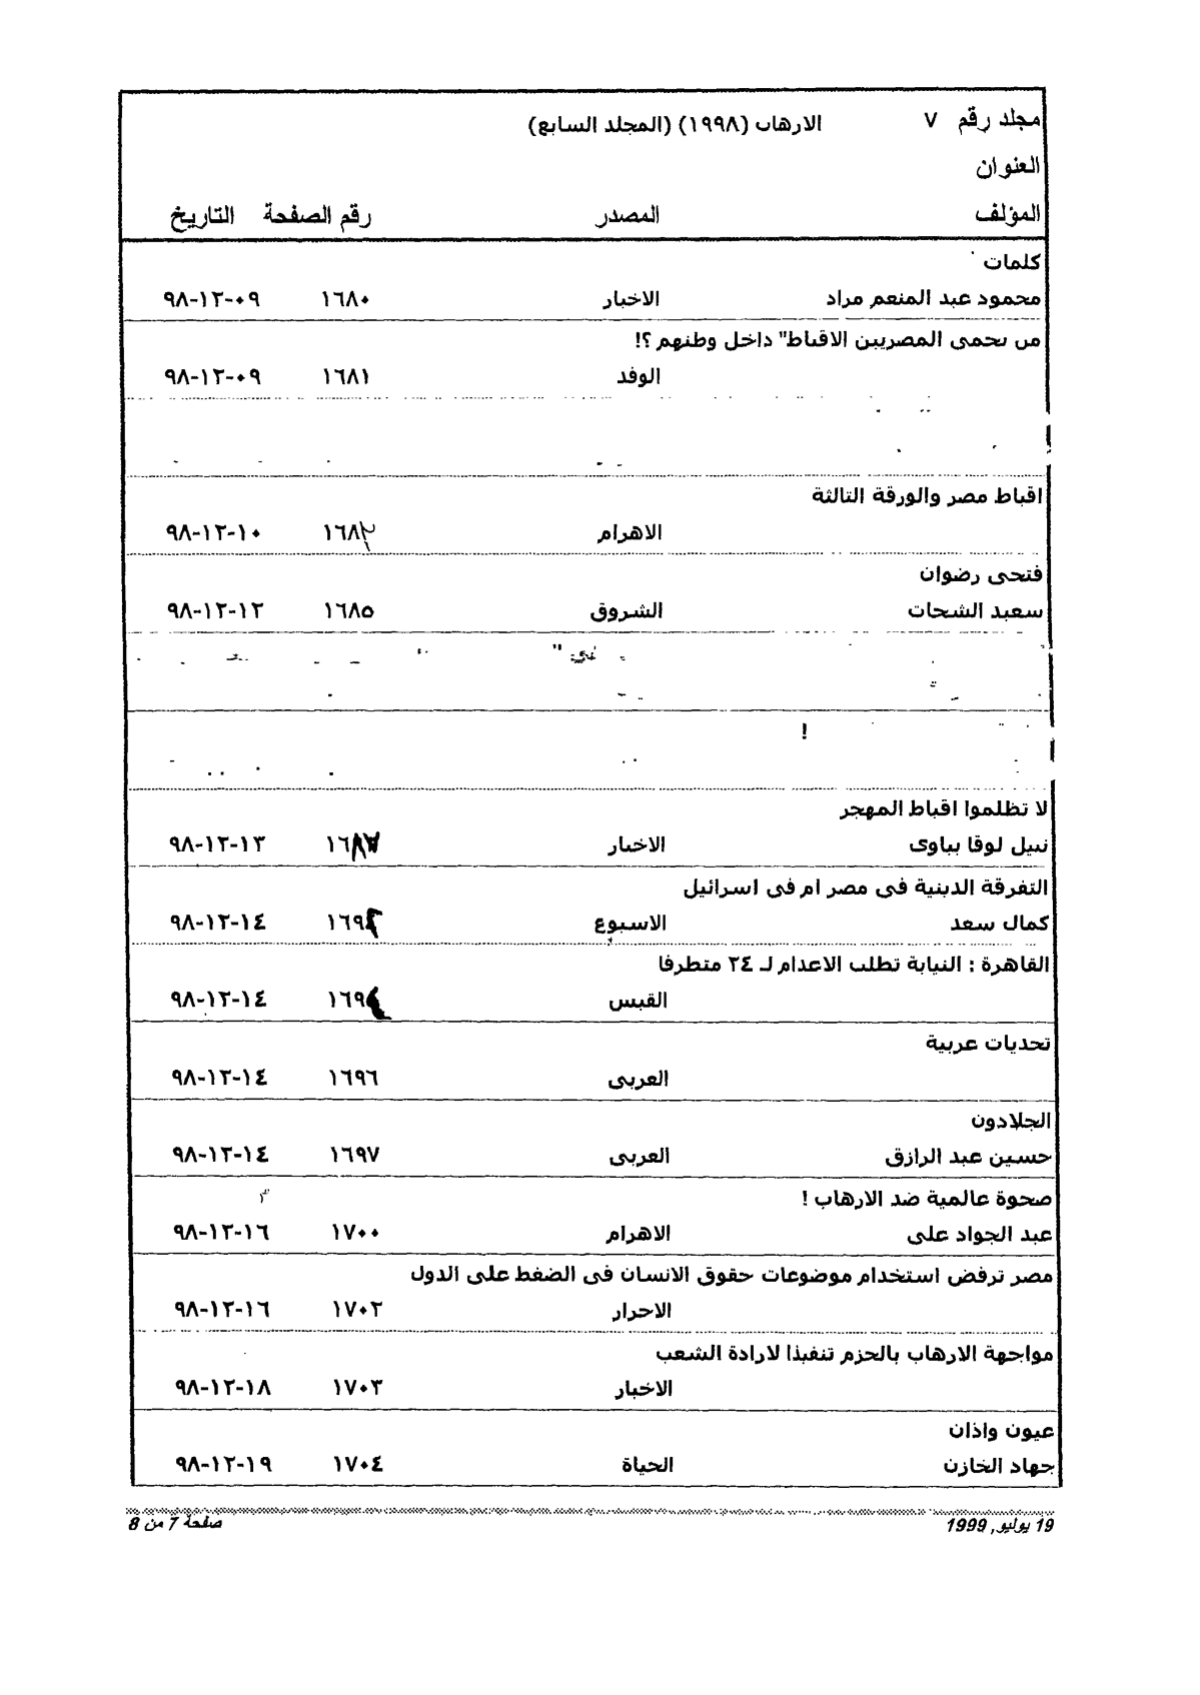 مجلد رقم ٧ الارهاب (١٩٩٨) (المجلد السابع)
العنوان
المؤلف المصدر رقم الصفحة التاريخ
كلمات
محمود عبد المنعم مراد الاخبار ١٦٨٠ ٠٩-١٢-٩٨
من يحمى المصريين الاقباط" داخل وطنهم ؟!
الوفد ١٦٨١ ٠٩-١٢-٩٨
اقباط مصر والورقة الثالثة
الاهرام ١٠-١٢-٩٨
فتحى رضوان
سعيد الشحات الشروق ١٦٨٥ ١٢-١٢-٩٨
!
لا تظلموا اقباط المهجر
نبيل لوقا بباوى الاخبار ١٣-١٢-٩٨
التفرقة الدينية فى مصر ام فى اسرائيل
كمال سعد الاسبوع ١٤-١٢-٩٨
القاهرة : النيابة تطلب الاعدام لـ ٢٤ متطرفا
القبس ١٤-١٢-٩٨
تحديات عربية
العربى ١٦٩٦ ١٤-١٢-٩٨
الجلادون
حسين عبد الرازق العربى ١٦٩٧ ١٤-١٢-٩٨
صحوة عالمية ضد الارهاب !
عبد الجواد على الاهرام ١٧٠٠ ١٦-١٢-٩٨
مصر ترفض استخدام موضوعات حقوق الانسان فى الضغط على الدول
الاحرار ١٧٠٢ ١٦-١٢-٩٨
مواجهة الارهاب بالحزم تنفيذا لارادة الشعب
الاخبار ١٧٠٣ ١٨-١٢-٩٨
عيون واذان
جهاد الخازن الحياة ١٧٠٤ ١٩-١٢-٩٨
19 يوليو, 1999 صفحة 7 من 8